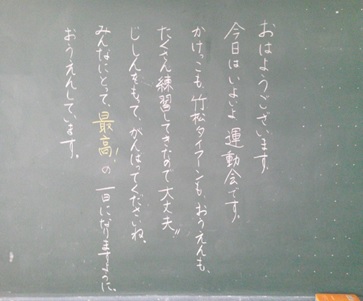 おはようございます。
今日はいよいよ運動会です。
かけっこも、竹松タイフーンも、おうえんも、
たくさん練習してきたので大丈夫!!
じしんをもって、がんばってくださいね。
みんなにとって、最高!の一日になりますように。
おうえんしています。